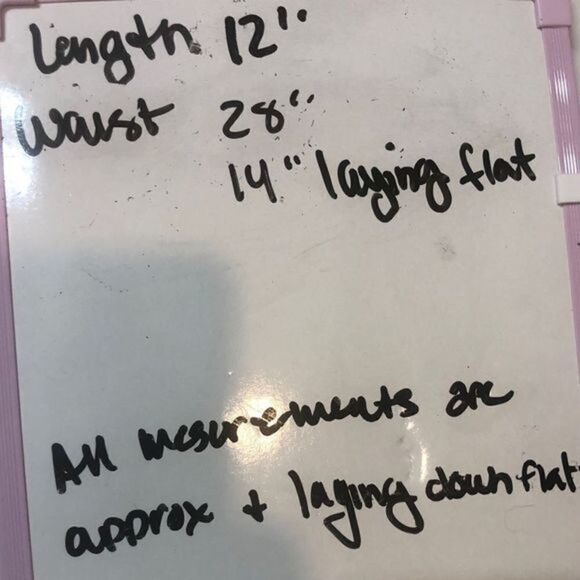 Length 12"
Waist 28"
14" laying flat
All mesurements are
approx + laying down flat